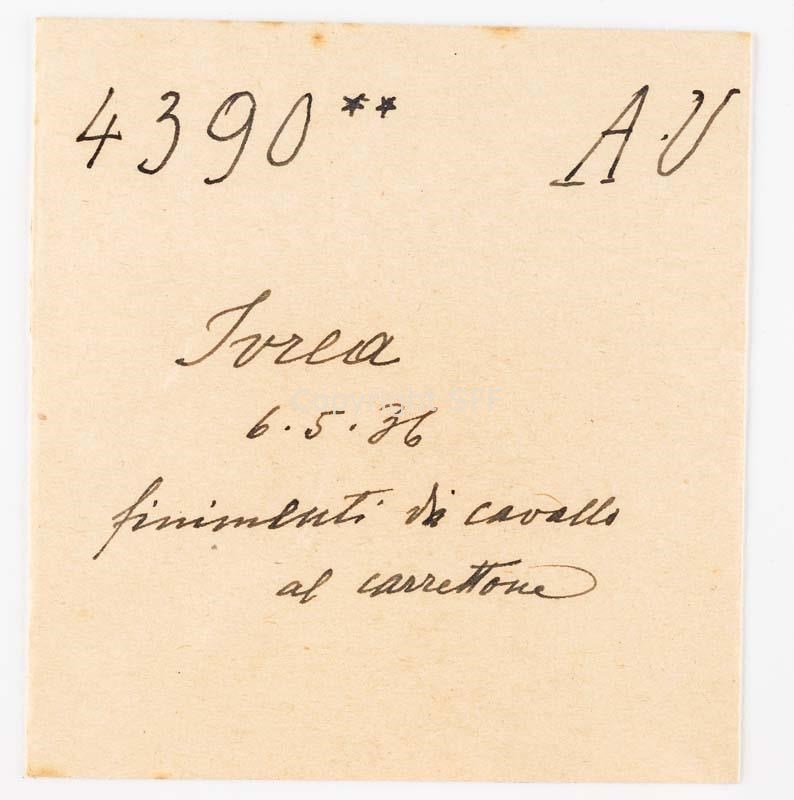 4390** A.V
Ivrea
6.5.36
finimenti di cavallo
al carrettone